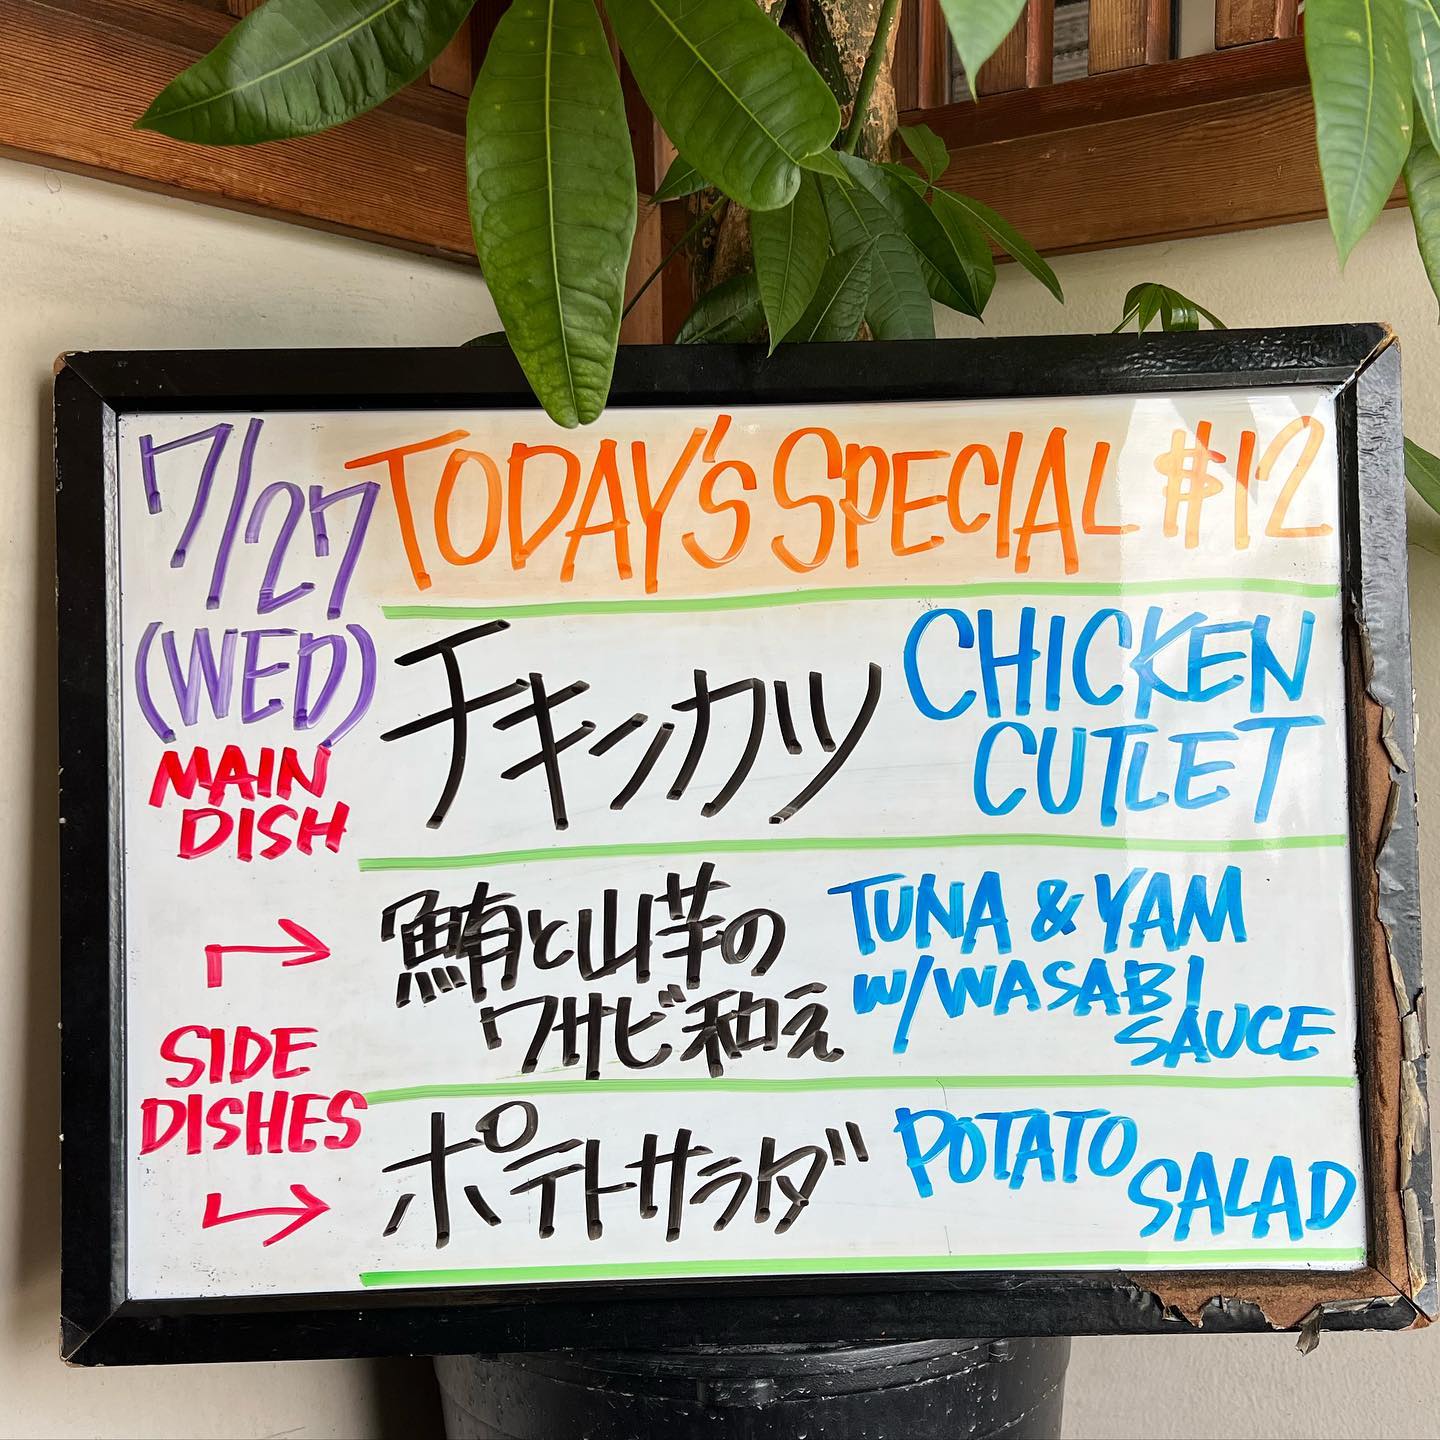 7/27
(WED)
TODAY'S SPECIAL $12
MAIN
DISH
チキンカツ
CHICKEN
CUTLET
SIDE
DISHES
鮪と山芋の
ワサビ和え
TUNA & YAM
W/WASABI
SAUCE
ポテトサラダ
POTATO
SALAD